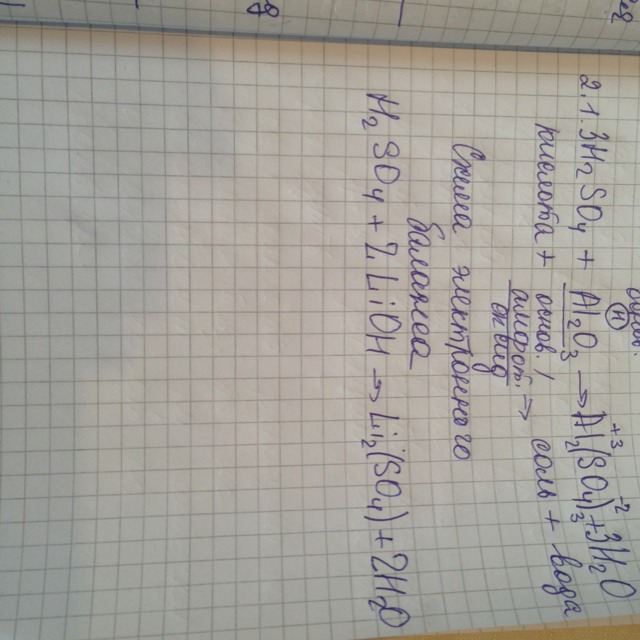 2.1. 3H₂SO₄ + Al₂O₃ → Al₂(SO₄)₃ + 3H₂O
+3 -2
кислота + основ. / амфот. оксид → соль + вода
Схема электронного
баланса
H₂SO₄ + 2LiOH → Li₂(SO₄) + 2H₂O